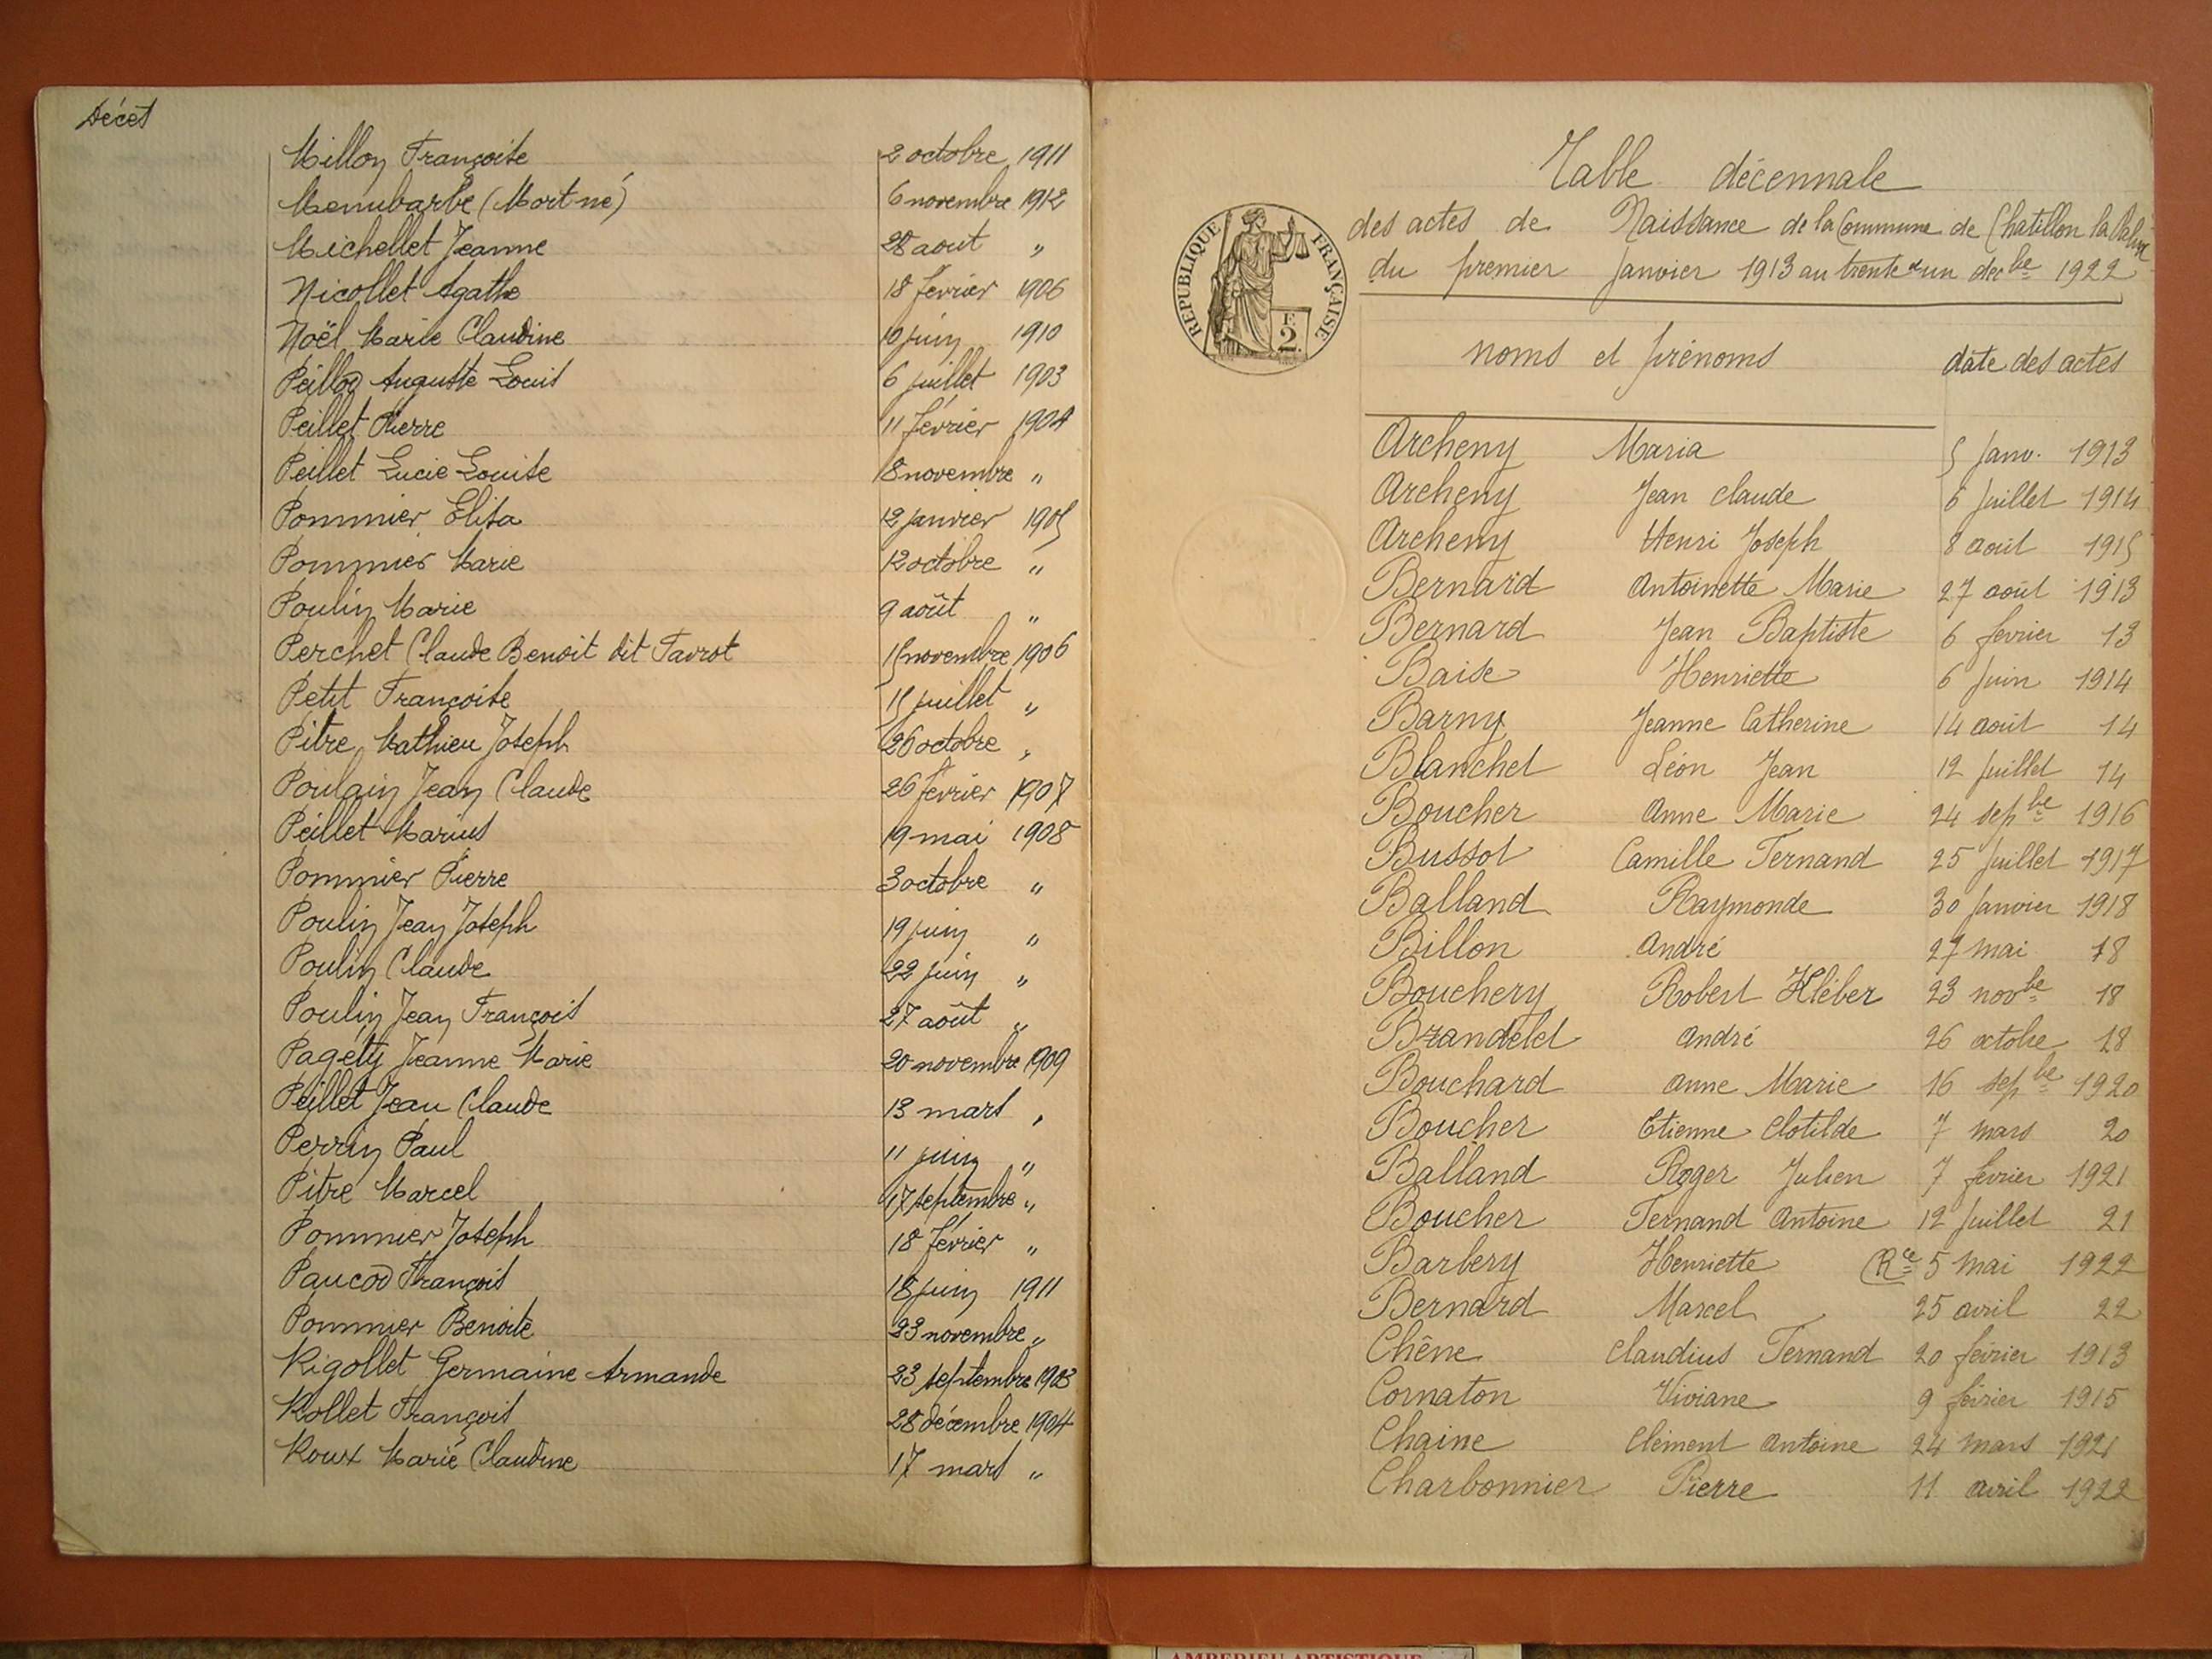 Décès
Millon Françoise 2 octobre 1911
Menubarbe (Mort-né) 6 novembre 1912
Michellet Jeanne 28 aout "
Nicollet Agathe 18 février 1906
Noël Marie Claudine 10 juin 1910
Peillod Auguste Louis 6 juillet 1903
Peillet Pierre 11 février 1904
Peillet Lucie Louise 8 novembre "
Pommier Elisa 12 janvier 1905
Pommier Marie 12 octobre "
Poulin Marie 9 août "
Perchet Claude Benoit dit Favrot 15 novembre 1906
Petit Françoise 15 juillet "
Pitre Mathieu Joseph 26 octobre "
Poulain Jean Claude 26 février 1907
Peillet Marius 19 mai 1908
Pommier Pierre 3 octobre "
Poulin Jean Joseph 19 juin "
Poulin Claude 22 juin "
Poulin Jean François 27 août "
Pagety Jeanne Marie 20 novembre 1909
Peillet Jean Claude 13 mars "
Perrin Paul 11 juin "
Pitre Marcel 17 septembre "
Pommier Joseph 18 février "
Paucod François 18 juin 1911
Pommier Benoite 23 novembre "
Rigollet Germaine Armande 23 septembre 1903
Rollet François 28 décembre 1904
Roux Marie Claudine 17 mars "
RÉPUBLIQUE FRANÇAISE
F
2
Table décennale
des actes de Naissance de la Commune de Chatillon la Palud
du premier Janvier 1913 au trente et un decbe 1922
noms et prénoms date des actes
Archeny Maria 5 Janv. 1913
Archeny Jean claude 6 Juillet 1914
Archeny Henri Joseph 8 août 1915
Bernard Antoinette Marie 27 août 1913
Bernard Jean Baptiste 6 fevrier 13
Baise Henriette 6 Juin 1914
Barny Jeanne Catherine 14 août 14
Blanchet Léon Jean 12 Juillet 14
Boucher Anne Marie 24 sepbe 1916
Bussot Camille Fernand 25 Juillet 1917
Balland Raymonde 30 Janvier 1918
Billon André 27 mai 18
Bouchery Robert Kléber 23 novbe 18
Brandelet André 26 octobre 18
Bouchard Anne Marie 16 sepbe 1920
Boucher Etienne Clotilde 7 mars 20
Balland Roger Julien 7 fevrier 1921
Boucher Fernand Antoine 12 Juillet 21
Barbery Henriette (Rce 5 Mai 1922
Bernard Marcel 25 avril 22
Chêne Claudius Fernand 20 février 1913
Cornaton Viviane 9 février 1915
Chaine Clément Antoine 24 Mars 1921
Charbonnier Pierre 11 avril 1922
AMBERIEU ARTISTIQUE